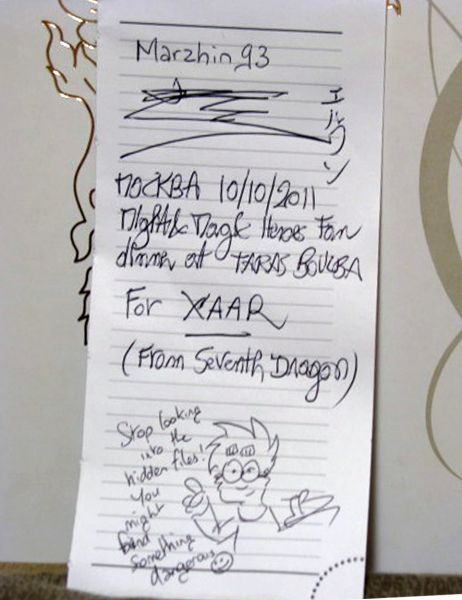 Marzhin 93
エルワン
МОСКВА 10/10/2011
Might & Magic Heroes Fan
dinner at TARAS BOULBA
For XAAR
(From Seventh Dragon)
Stop looking
into the
hidden files!
You
might
find
something
dangerous